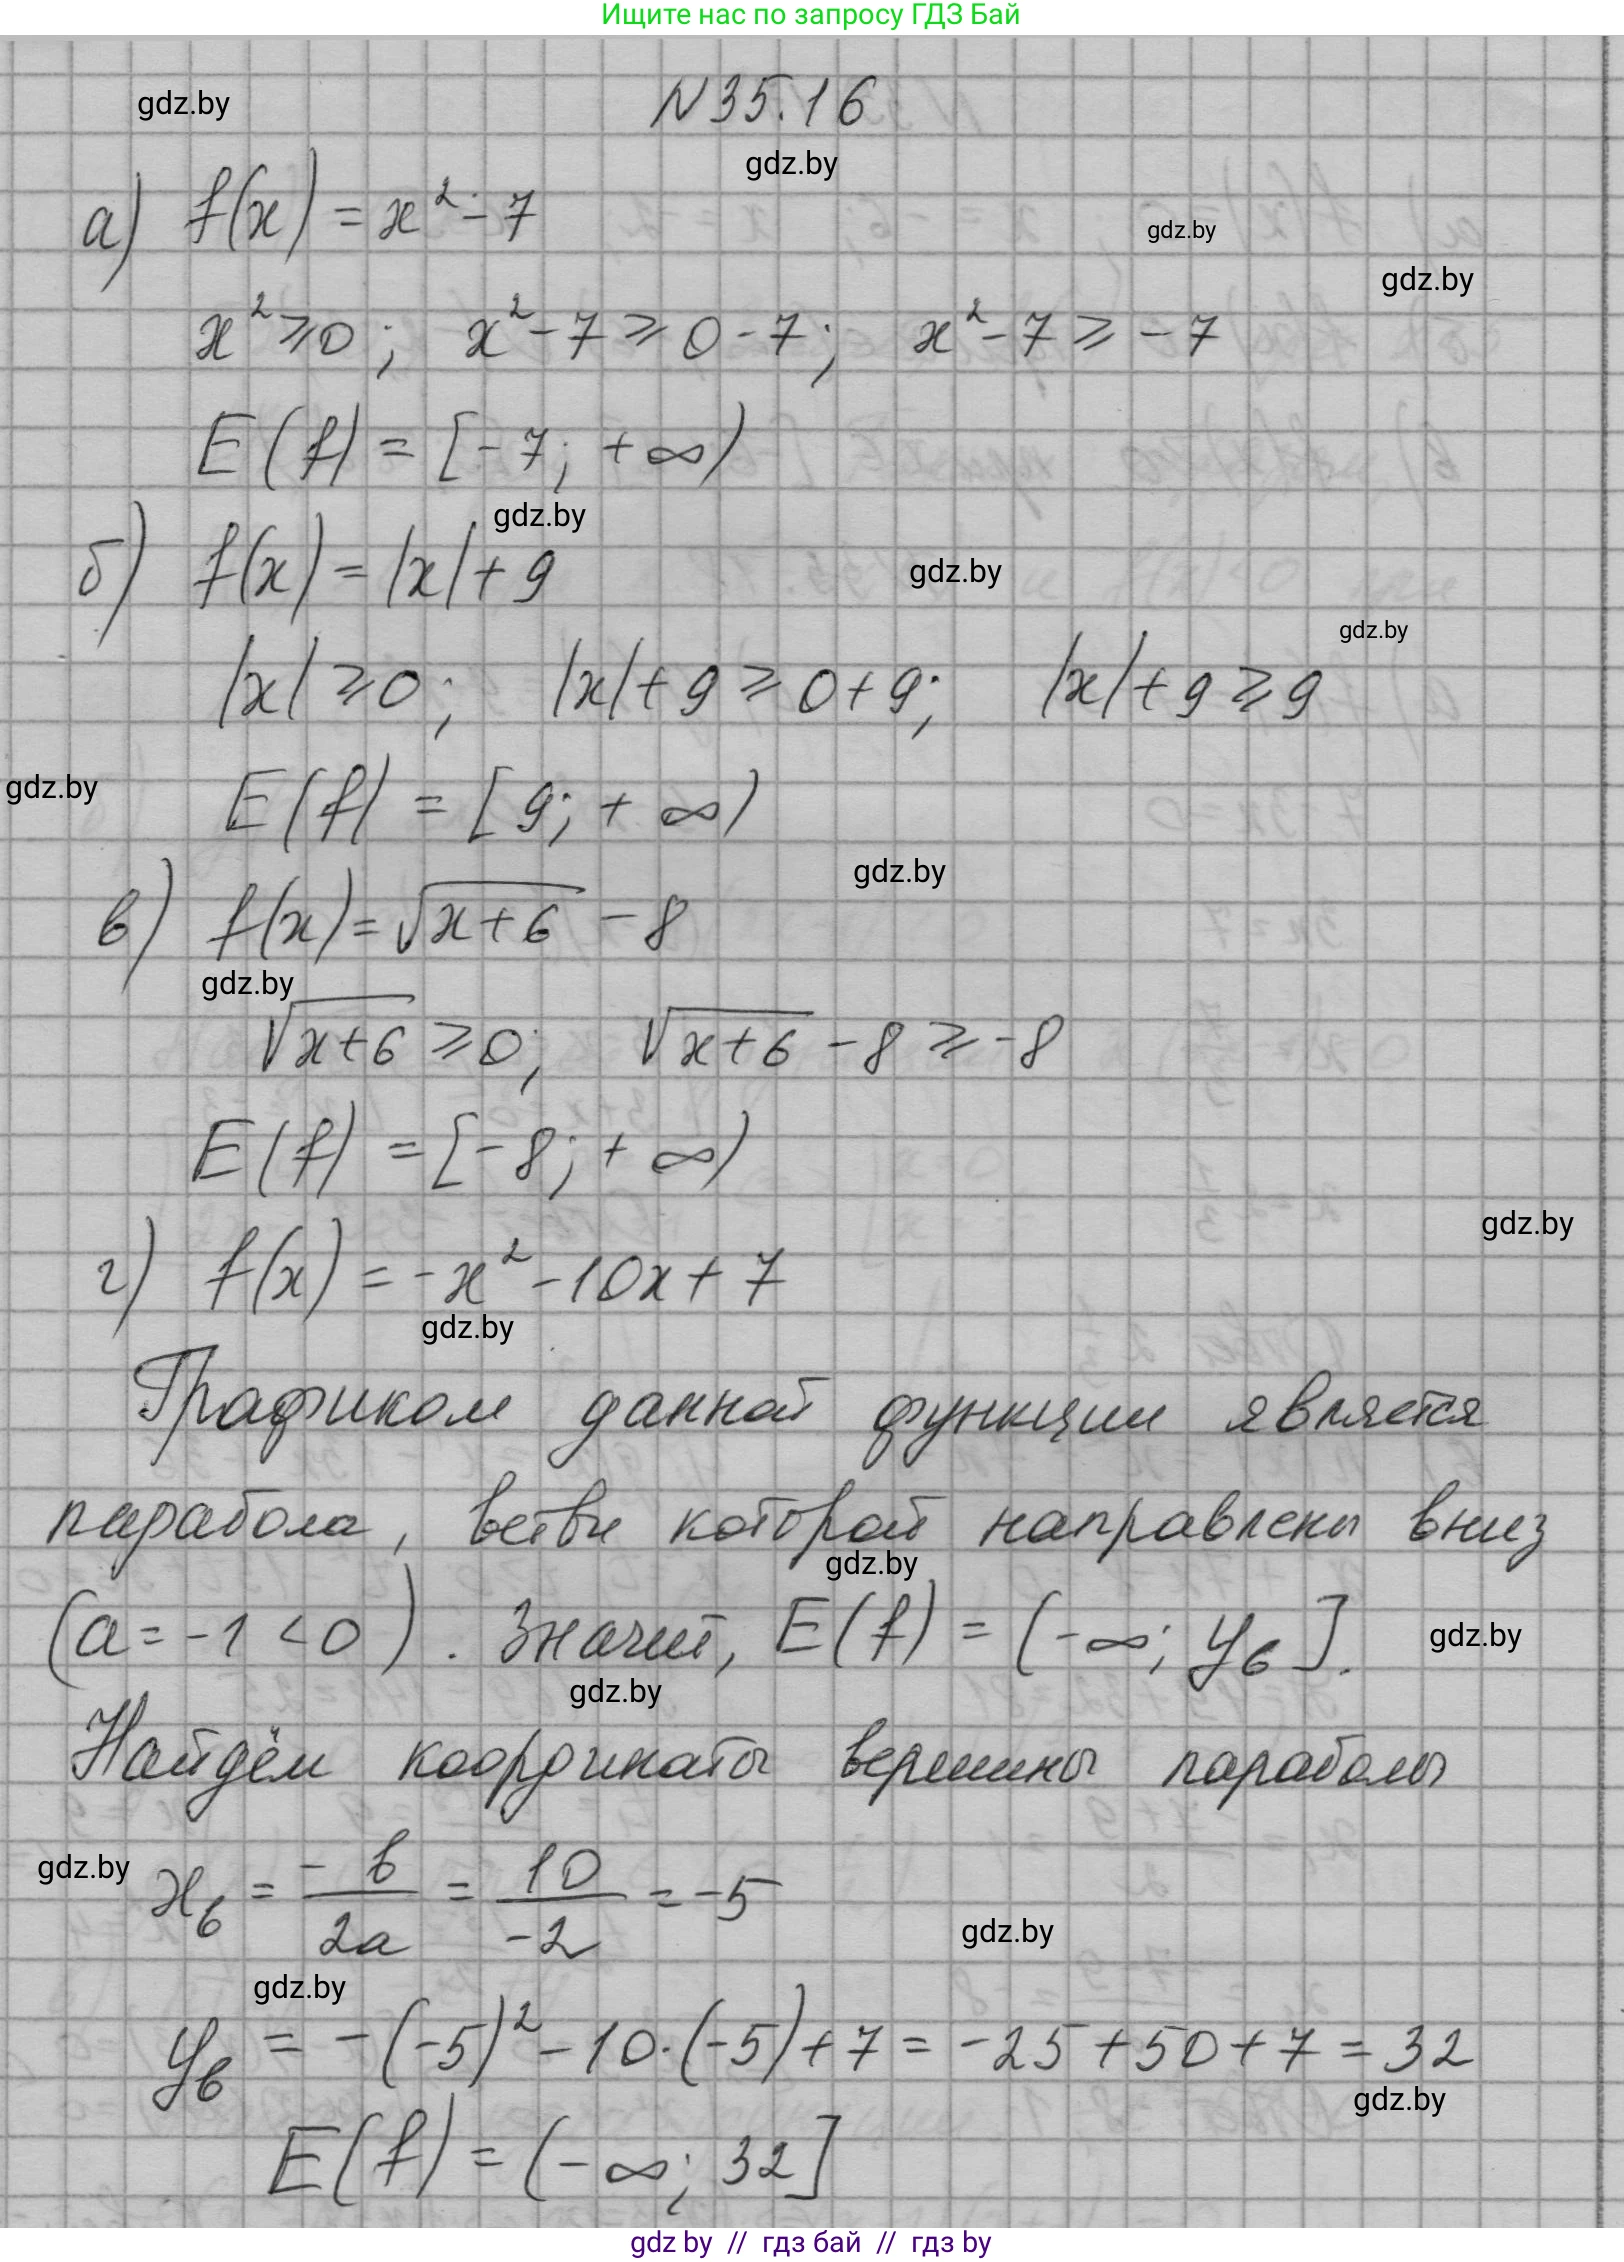 Ищите нас по запросу ГДЗ Бай
N35.16
gdz.by
gdz.by
а) f(x) = x² - 7
gdz.by
gdz.by
x² ⩾ 0; x² - 7 ⩾ 0 - 7; x² - 7 ⩾ -7
E(f) = [-7; +∞)
gdz.by
б) f(x) = |x| + 9
gdz.by
gdz.by
|x| ⩾ 0; |x| + 9 ⩾ 0 + 9; |x| + 9 ⩾ 9
gdz.by
E(f) = [9; +∞)
gdz.by
в) f(x) = √(x+6) - 8
gdz.by
√(x+6) ⩾ 0; √(x+6) - 8 ⩾ -8
E(f) = [-8; +∞)
gdz.by
г) f(x) = -x² - 10x + 7
gdz.by
Графиком данной функции является
парабола, ветви которой направлены вниз
gdz.by
(a = -1 < 0). Значит, E(f) = (-∞; yв].
gdz.by
gdz.by
Найдём координаты вершины параболы
gdz.by
xв = -b/2a = 10/-2 = -5
gdz.by
gdz.by
yв = -(-5)² - 10·(-5) + 7 = -25 + 50 + 7 = 32
gdz.by
E(f) = (-∞; 32]
gdz by // гдз бай // гдз by